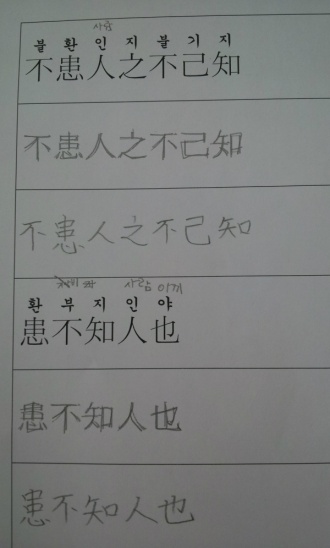 사람
불환인지불기지
不患人之不己知
不患人之不己知
不患人之不己知
사람 이께
환부지인야
患不知人也
患不知人也
患不知人也